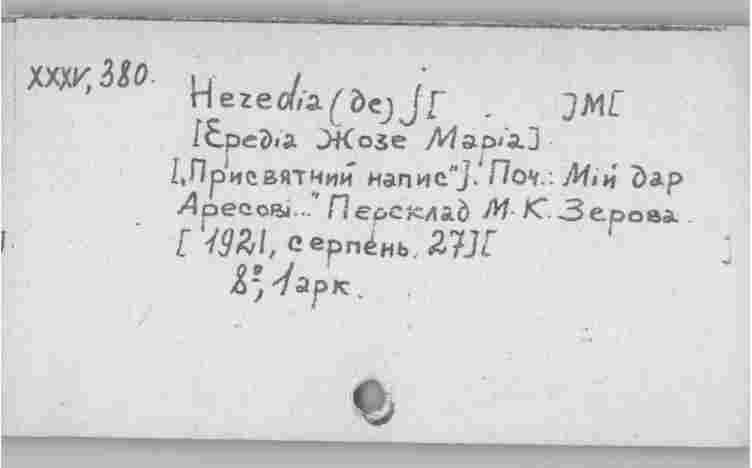 XXXV, 380.
Heredia (де) J[ . ]M[
[Ередіа Жозе Маріа]
[„Присвятний напис"]. Поч.: Мій дар
Аресові..." Персклад М. К. Зерова.
[ 1921, серпень. 27][ ]
8°, 1 арк.